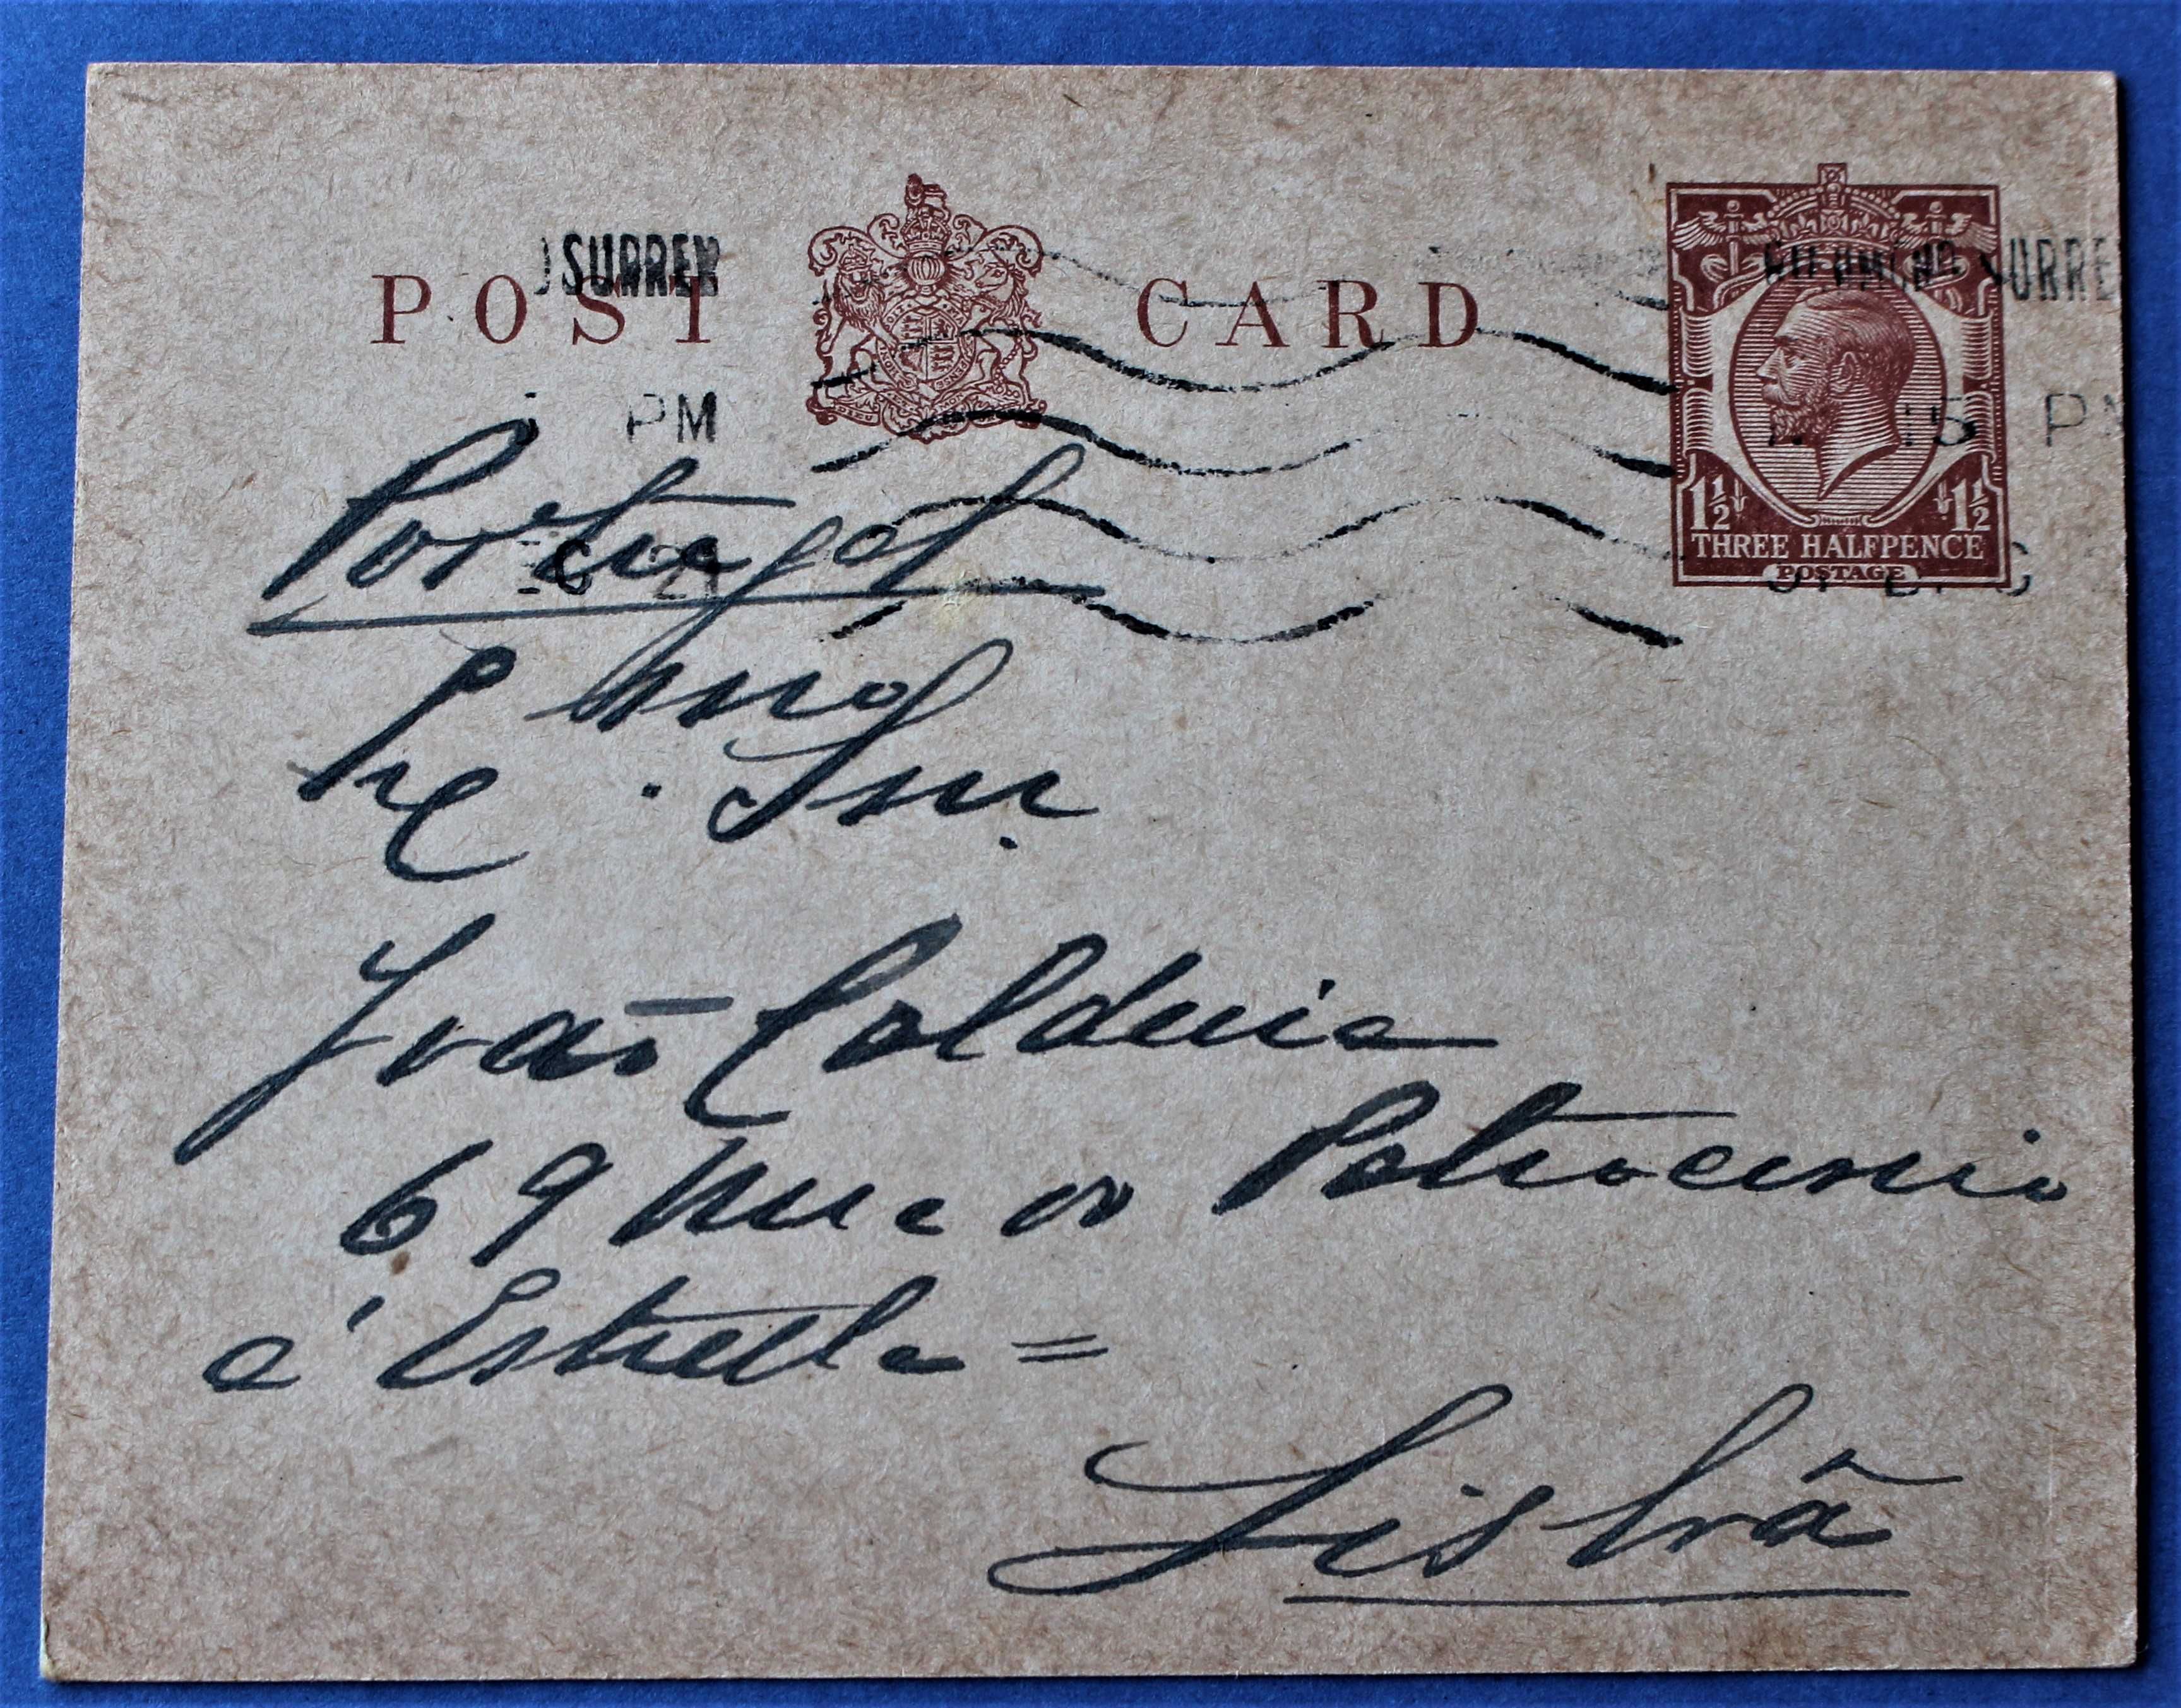 POST CARD
SURREY
SURRE
PM
15 P
1½ 1½
THREE HALFPENCE
POSTAGE
Portugal
Exmo. Snr.
João Caldeira
69 Rua do Patrocinio
á Estrella =
Lisbôa